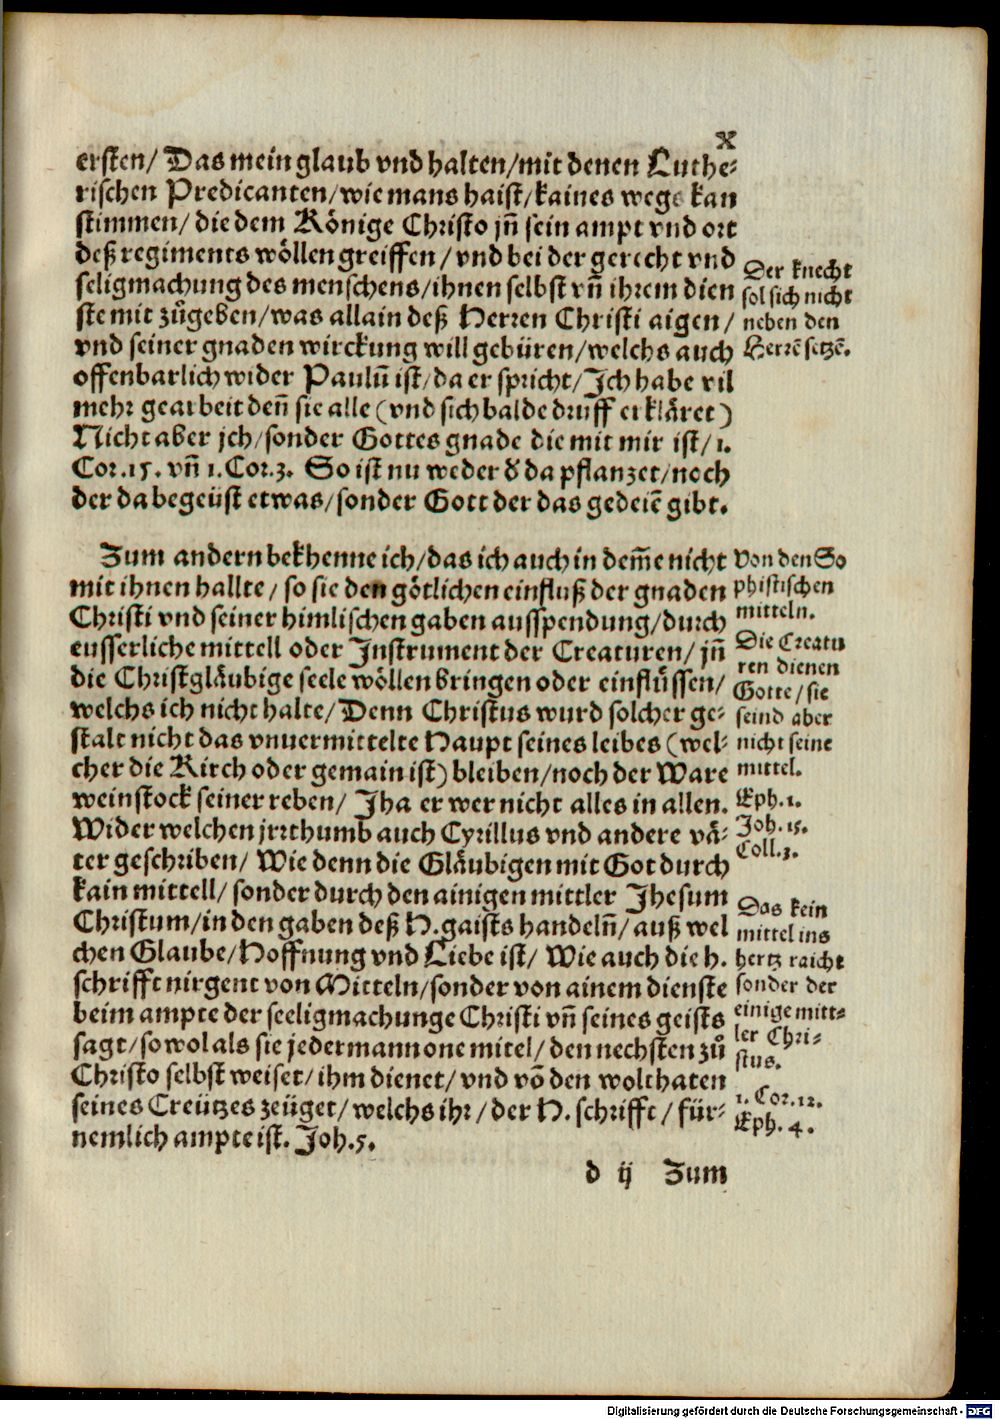 x
ersten/ Das mein glaub vnd halten/mit denen Luthe⸗
rischen Predicanten/wie mans haist/kaines wegs kan
stimmen/ die dem Könige Christo jñ sein ampt vnd ort
deß regiments wöllen greiffen/ vnd bei der gerecht vnd
seligmachung des menschens/ihnen selbst vñ ihrem dien
ste mit zůgeben/was allain deß Herren Christi aigen/
vnd seiner gnaden wirckung will gebüren/welchs auch
offenbarlich wider Paulū ist/da er spricht/Ich habe vil
mehr gearbeit deñ sie alle (vnd sich balde druff erkläret)
Nicht aber jch/sonder Gottes gnade die mit mir ist/ 1.
Cor.15. vñ 1.Cor.3. So ist nu weder d' da pflanzet/noch
der da begeüst etwas/sonder Gott der das gedeiē gibt.
Der knecht
sol sich nicht
neben den
Herrē setzē.
Zum andern bekhenne ich/das ich auch in dem̄e nicht
mit ihnen hallte/ so sie den götlichen einfluß der gnaden
Christi vnd seiner himlischen gaben ausspendung/durch
eusserliche mittell oder Instrument der Creaturen/ jñ
die Christgläubige seele wöllen bringen oder einflüssen/
welchs ich nicht halte/ Denn Christus wurd solcher ge⸗
stalt nicht das vnuermittelte Haupt seines leibes (wel⸗
cher die Kirch oder gemain ist) bleiben/noch der Ware
weinstock seiner reben/ Jha er wer nicht alles in allen.
Wider welchen jrrthumb auch Cyrillus vnd andere vä⸗
ter geschriben/ Wie denn die Gläubigen mit Got durch
kain mittell/ sonder durch den ainigen mittler Jhesum
Christum/in den gaben deß H.gaists handelñ/ auß wel
chen Glaube/Hoffnung vnd Liebe ist/ Wie auch die h.
schrifft nirgent von Mitteln/sonder von ainem dienste
beim ampte der seeligmachunge Christi vñ seines geists
sagt/sowol als sie jedermann one mitel/ den nechsten zů
Christo selbst weiset/ihm dienet/ vnd vō den wolthaten
seines Creützes zeüget/welchs ihr/ der H. schrifft/ für⸗
nemlich ampte ist. Joh.5.
Von den So
phistischen
mitteln.
Die Creatu
ren dienen
Gotte/sie
seind aber
nicht seine
mittel.
Eph.1.
Joh.15.
Coll.3.
Das kein
mittel ins
hertz raicht
sonder der
einige mitt⸗
ler Chri⸗
stus.
1. Cor.12.
Eph. 4.
d ij Zum
Digitalisierung gefördert durch die Deutsche Forschungsgemeinschaft - DFG